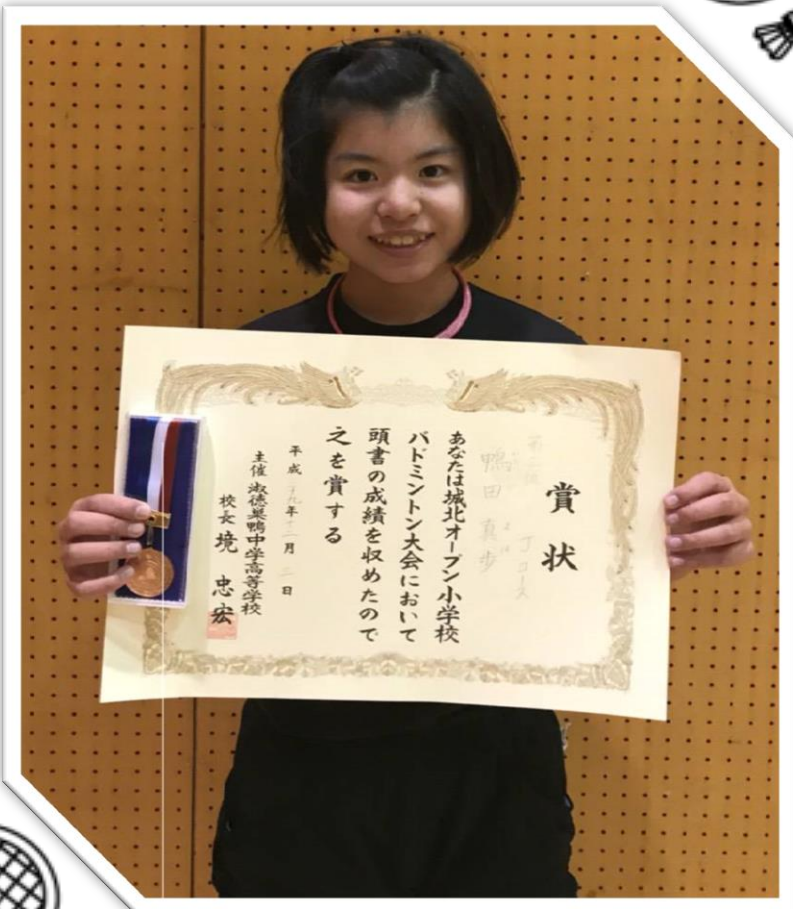 賞状
鴨田 真歩
あなたは城北オープン小学校
バドミントン大会において
頭書の成績を収めたので
之を賞する
平成 年十一月 二日
主催 淑徳巣鴨中学高等学校
校長 境 忠宏